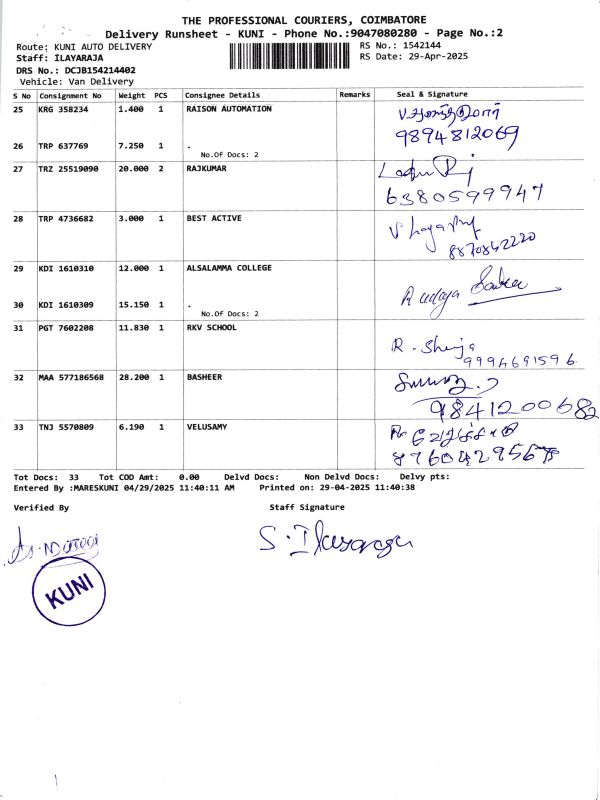 THE PROFESSIONAL COURIERS, COIMBATORE
Delivery Runsheet - KUNI - Phone No.:9047080280 - Page No.:2
Route: KUNI AUTO DELIVERY
RS No.: 1542144
Staff: ILAYARAJA
RS Date: 29-Apr-2025
DRS No.: DCJB154214402
Vehicle: Van Delivery
S No Consignment No Weight PCS Consignee Details Remarks Seal & Signature
25 KRG 358234 1.400 1 RAISON AUTOMATION
9894812069
26 TRP 637769 7.250 1 .
No.Of Docs: 2
27 TRZ 25519090 20.000 2 RAJKUMAR
6380599947
28 TRP 4736682 3.000 1 BEST ACTIVE
8870842220
29 KDI 1610310 12.000 1 ALSALAMMA COLLEGE
R udaya
30 KDI 1610309 15.150 1 .
No.Of Docs: 2
31 PGT 7602208 11.830 1 RKV SCHOOL
R. Sheeja
9994691596
32 MAA 577186568 28.200 1 BASHEER
9841200682
33 TNJ 5570809 6.190 1 VELUSAMY
Tot Docs: 33 Tot COD Amt: 0.00 Delvd Docs: Non Delvd Docs: Delvy pts:
Entered By :MARESKUNI 04/29/2025 11:40:11 AM Printed on: 29-04-2025 11:40:38
Verified By Staff Signature
S. Ilayaraja
KUNI